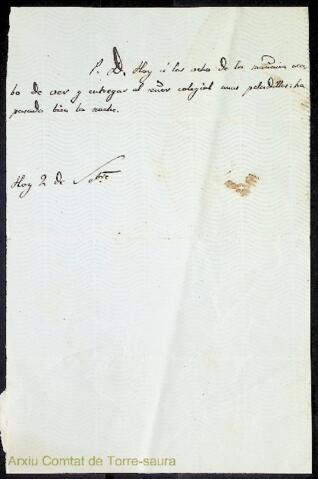 P. D. Hoy á las ocho de la mañana aca-
bo de ver y entregar al señor colegial unas peladillas; ha
pasado bien la noche.
Hoy 2 de Sbre
Arxiu Comtat de Torre-saura